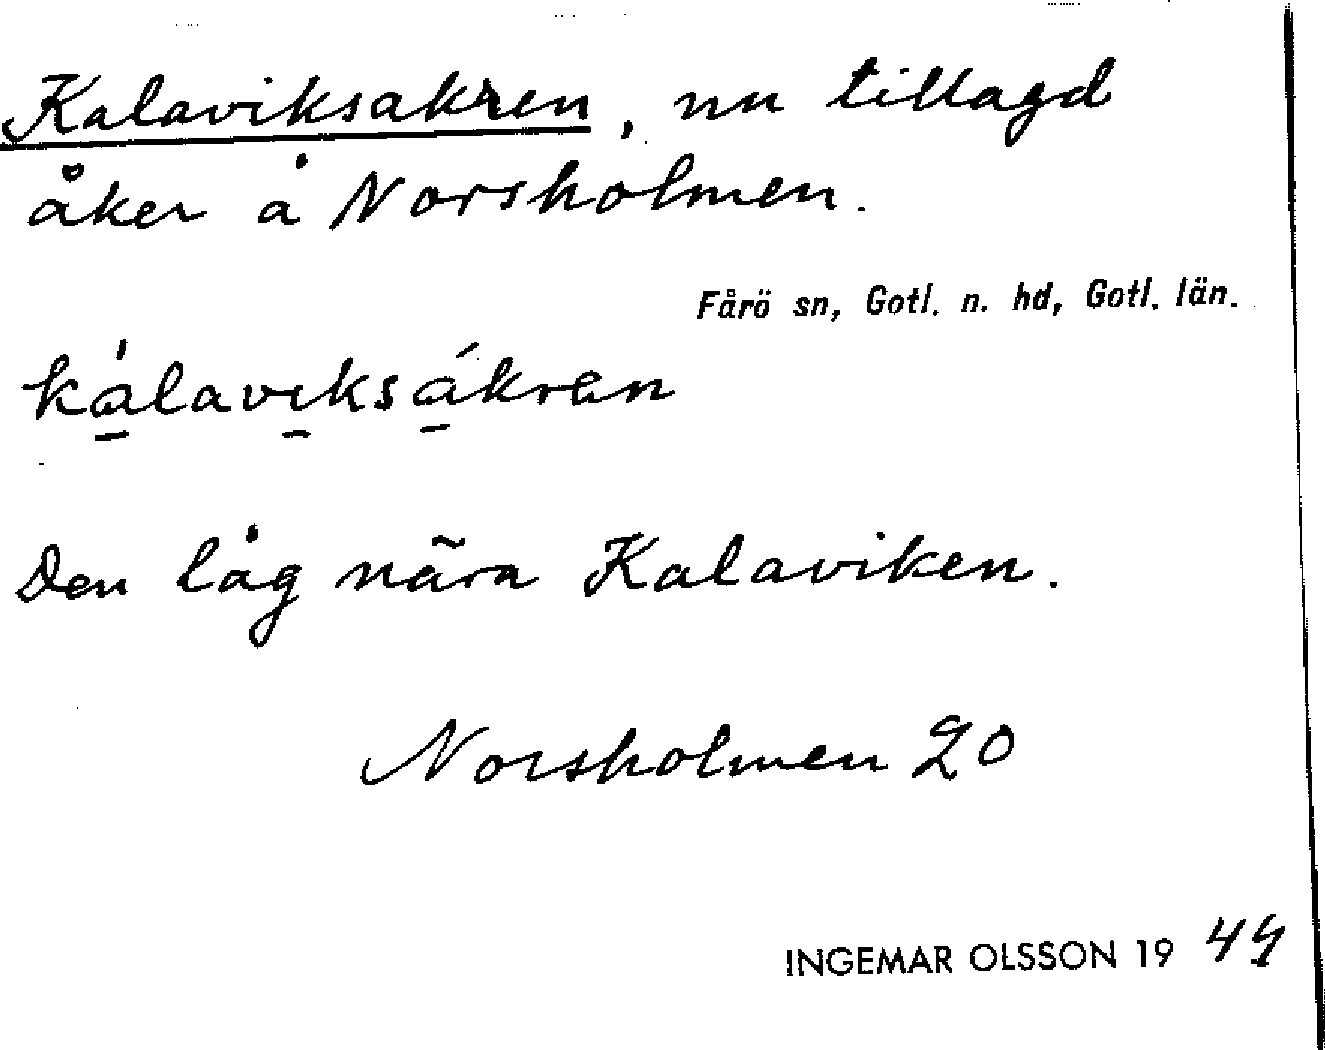 Kalaviksakren, nu tillagd
åker å Norsholmen.
Fårö sn, Gotl. n. hd, Gotl. län.
kálaviksákran
Den låg nära Kalaviken.
Norsholmen 20
INGEMAR OLSSON 1944